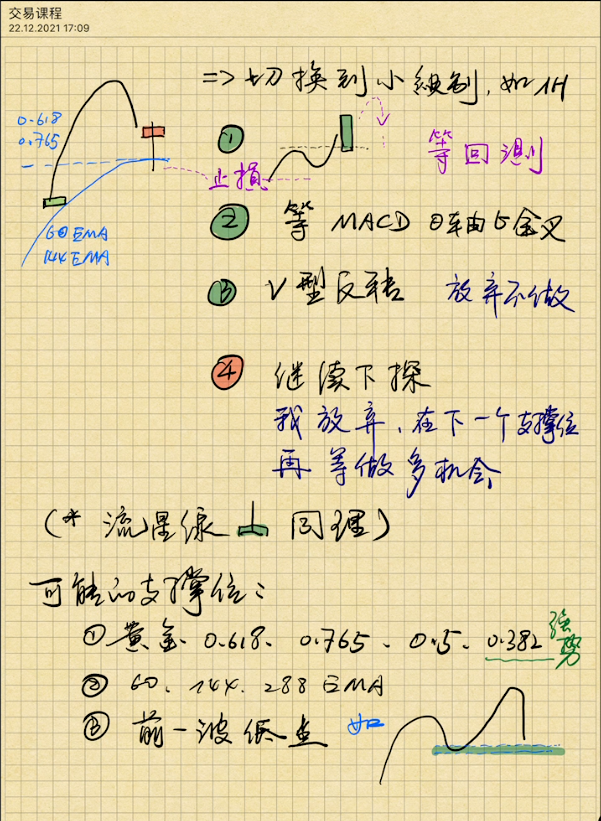 交易课程
22.12.2021 17:09
=> 切换到小级别，如 1H
0.618
0.765
60 EMA
144 EMA
止損
① 等回测
② 等 MACD 0轴由与金叉
③ V型反转 放弃不做
④ 继续下探
我放弃，在下一个支撑位
再等做多机会
(* 流星缐 同理)
可能的支撑位：
① 黄金 0.618、0.765、0.5、0.382 强势
② 60、144、288 EMA
③ 前一波低点 如